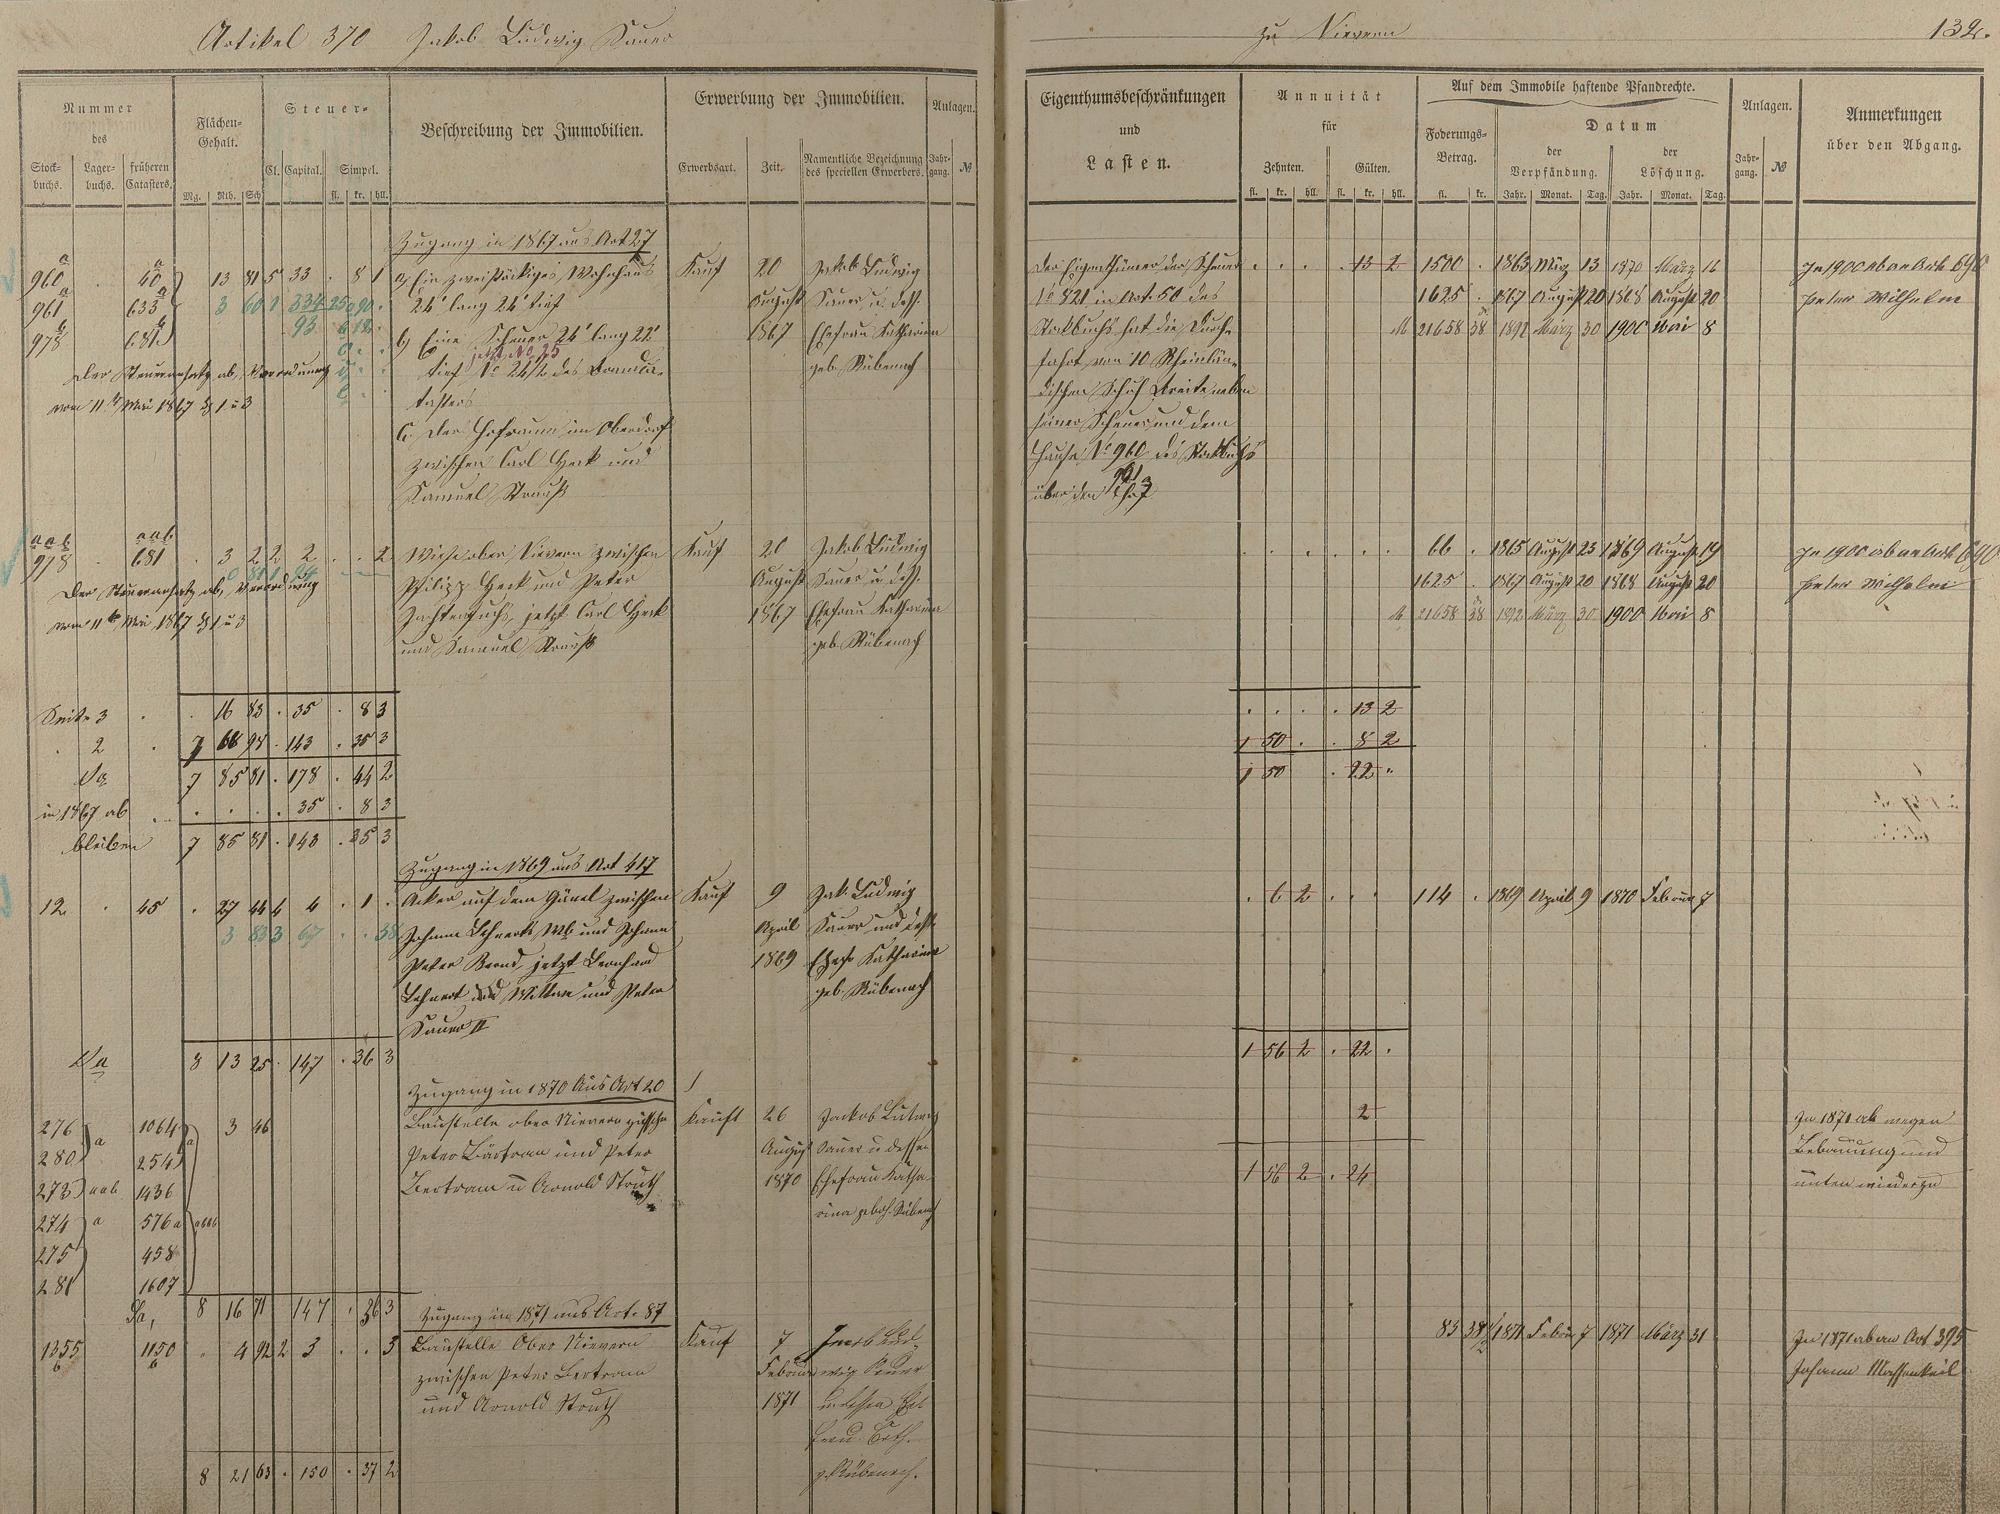 Artikel 370 Jakob Ludwig Sauer
zu Nievern 132.
Nummer
des
Stock-
buchs.
Lager-
buchs.
früheren
Catasters.
Flächen-
Gehalt.
Mg. Rth. Sch
Steuer-
Cl. Capital. Simpel.
fl. kr. hll.
Beschreibung der Immobilien.
Erwerbung der Immobilien.
Erwerbsart. Zeit. Namentliche Bezeichnung
des speciellen Erwerbers.
Anlagen.
Jahr-
gang. №
Eigenthumsbeschränkungen
und
Lasten.
Annuität
für
Zehnten. Gülten.
fl. kr. hll. fl. kr. hll.
Auf dem Immobile haftende Pfandrechte.
Foderungs-
Betrag.
fl. kr.
Datum
der
Verpfändung.
Jahr. Monat. Tag.
der
Löschung.
Jahr. Monat. Tag.
Anlagen.
Jahr-
gang. №
Anmerkungen
über den Abgang.
Zugang in 1867 aus Art 27
960 a 40 a 13 81 5 33 . 8 1 a, Ein zweistöckiges Wohnhaus Kauf 20 Jakob Ludwig
961 a 633 a 3 60 1 334 24' lang 24' tief August Sauer u. dess.
978 b 681 b 93 b, Eine Scheuer 26' lang 22' 1867 Ehefrau Katharina
jetzt No 25
tief No 24/2 des Brandca- geb. Rübenach
tasters
Der Steueransatz ab, Verordnung
vom 11ten Mai 1867 §§ 1 u 3
C. Der Hofraum im Oberdorf
zwischen Carl Heck und
Samuel Strauß
Der Eigenthümer der Scheuer . . . . 13 2 1500 . 1863 März 13 1870 März 16 In 1900 ab an Art 690
No 821 in Art. 50 des 1625 . 1867 August 20 1868 August 20 Peter Wilhelm
Stockbuchs hat die Durch- M 21658 38 1892 März 30 1900 Mai 8
fahrt von 10 Rheinlän-
dischen Schuh Breite neben
seiner Scheuer und dem
Hause No 960 des Stockbuchs
961
über den Hof
a a b a a b
978 681 . 3 2 2 2 . . 2 Wiese ober Nievern zwischen Kauf 20 Jakob Ludwig
Philipp Heck und Peter August Sauer u. dess.
jetzt Carl Heck 1867 Ehefrau Katharina
und Samuel Strauß geb. Rübenach
Der Steueransatz ab, Verordnung
vom 11ten Mai 1867 §§ 1 u 3
. . . . . . 66 . 1865 August 25 1869 August 19 In 1900 ab an Art 690
1625 . 1867 August 20 1868 August 20 Peter Wilhelm
M 21658 38 1892 März 30 1900 Mai 8
Seite 3 . . 16 83 . 35 . 8 3 . . . . 13 2
. 2 . 7 68 98 . 143 . 35 3 1 50 . . 8 2
Sa 7 85 81 . 178 . 44 2 1 50 . 22 .
in 1867 ab . . . . 35 . 8 3
bleiben 7 85 81 . 143 . 35 3
Zugang in 1869 aus Art 417
12 . 45 . 27 44 4 4 . 1 . Acker auf dem zwischen Kauf 9 Jak. Ludwig
3 83 3 67 . . 38 Johann Lehnert Wb und Johann April Sauer und dess.
Peter Bernd, jetzt Bernhard 1869 Ehefr Katharina
Lehnert Wittwe und Peter geb. Rübenach
Sauer II
. 6 2 . . . 114 . 1869 April 9 1870 Februar 7
Sa 8 13 25 . 147 . 36 3 1 56 2 . 22 .
Zugang in 1870 aus Art 20
276 a 1064 a 3 46 Baustelle ober Nievern zwischen Kauft 26 Jackob Ludwig
280 254 Peter Bärtram und Peter August Sauer u dessen
273 aab 1436 Bertram u Arnold Struth 1870 Ehefrau Katha-
274 a 576 a rina geboh. Rübenach
275 458
281 1607
2 In 1871 ab wegen
Bebauung und
1 56 2 . 24 unten wieder zu
Sa, 8 16 71 147 . 36 3
Zugang in 1871 aus Art. 87
1355 b 1150 b . 4 92 2 3 . . 3 Baustelle Ober Nievern Kauf 7 Jacob Lud-
zwischen Peter Bertram Februar wig Sauer
und Arnold Struth 1871 u. dessen Ehe
frau Cath.
g. Rübenach.
83 38 1/2 1871 Februar 7 1871 März 31 In 1871 ab an Art 395
Johann Massenkeil
8 21 63 . 150 . 37 2